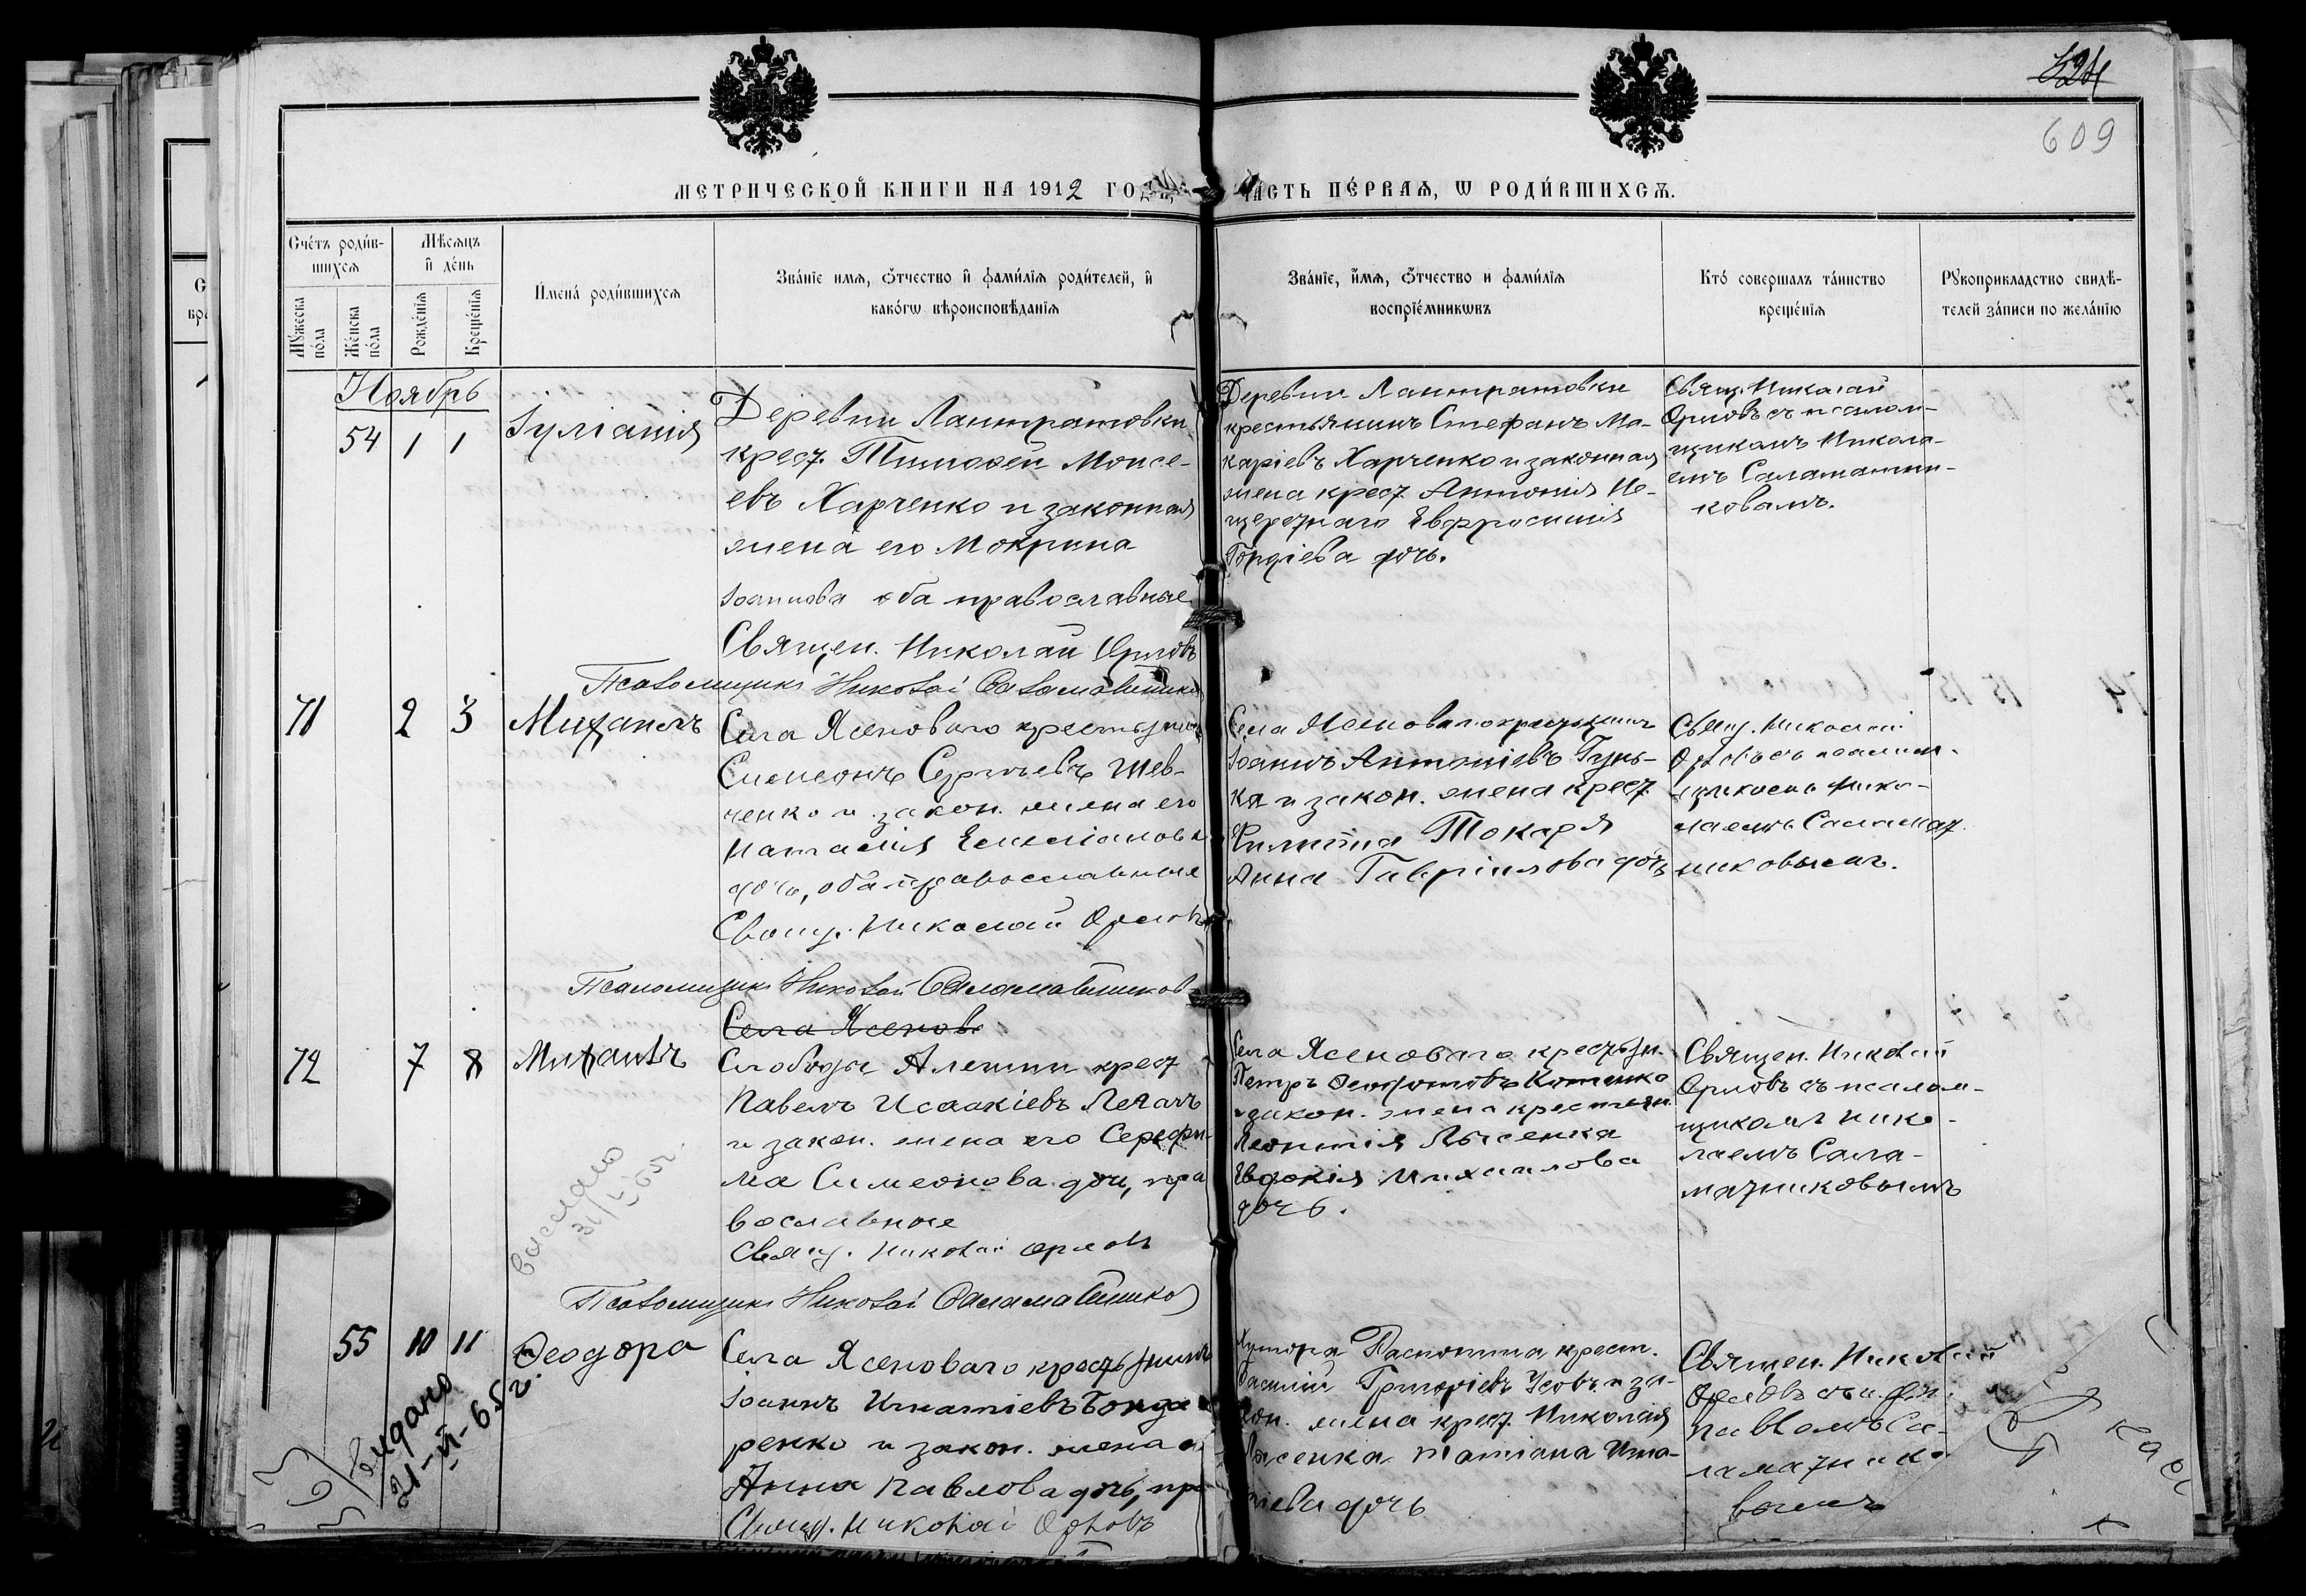 524
609
МЕТРИЧЕСКОЙ КНИГИ НА 1912 ГОДЪ, ЧАСТЬ ПЕ́РВАѦ, Ѡ РОДИ́ВШИХСѦ.
Сче́тъ роди́в-
шихсѧ
Мꙋ́жеска по́ла
Же́нска по́ла
Мѣ́сѧцъ
и҆ де́нь
Рожде́нїѧ
Креще́нїѧ
И҆мена̀ роди́вшихсѧ
Зва́нїе имѧ, ѻ҆́тчество и҆ фами́лїѧ роди́телей, и҆
како́гѡ вѣроисповѣ́данїѧ
Зва́нїе, и҆́мѧ, ѻ҆́тчество и фами́лїѧ
воспрїе́мникѡвъ
Кто́ совершалъ та́инство
креще́нїѧ
Рꙋкоприкладство свидѣ́-
телей за́писи по жела́нїю
Ноябрь
54 1 1
Іуліанія
Деревни Лантратовки
крест. Тимоѳей Моисе-
евъ Харченко и законная
жена его Мокрина
Іоаннова оба православные
Священ. Николай Орловъ
Псаломщикъ Николай Саламатников
Деревни Лантратовки
крестьянинъ Стефанъ Ма-
каріевъ Харченко и законная
жена крест. Антонія Не-
щеретнаго Евфросинія
Гордіева дочь.
Свящ. Николай
Орловъ съ псалом-
щикомъ Никола-
емъ Саламатни-
ковымъ.
71 2 3
Михаилъ
Села Ясеноваго крестьянинъ
Симеонъ Сергіевъ Шев-
ченко и закон. жена его
Наталія Емиліанова
дочь, оба православные
Свящ. Николай Орловъ
Псаломщикъ Николай Саламатников
Села Ясеноваго крестьянинъ
Іоаннъ Антоніевъ Гунь-
ка и закон. жена крест.
Филиппа Токаря
Анна Гавріилова дочь
Свящ. Николай
Орловъ съ псалом-
щикомъ Нико-
лаемъ Саламат
никовымъ.
Села Ясенов
72 7 8
Михаилъ
Слободы Алешни крест
Павелъ Исаакіевъ Легачъ
и закон. жена его Серафи-
ма Симеонова дочь, пра
вославные
Свящ. Николай Орловъ
Псаломщикъ Николай Саламатников
Села Ясеноваго крестьян.
Петръ Котенко
и закон. жена крестьян.
Леонтія Лысенка
Евдокія Михаилова
дочь.
Священ. Николай
Орловъ съ псалом-
щикомъ Нико-
лаемъ Сала-
матниковымъ
выслано
55 10 11
Ѳеодора
Села Ясеноваго крестьянинъ
Іоаннъ Игнатіевъ Бонда
ренко и закон. жена
Анна Павлова дочь, пра
Свящ. Николай Орловъ
Хутора крест.
Василій Григоріевъ Усовъ и за-
кон. жена крест. Николая
Лысенка Татіана Игна-
тіева дочь
Священ. Николай
Орловъ
Са-
ламатнико
вымъ
видано
21-II-65г.